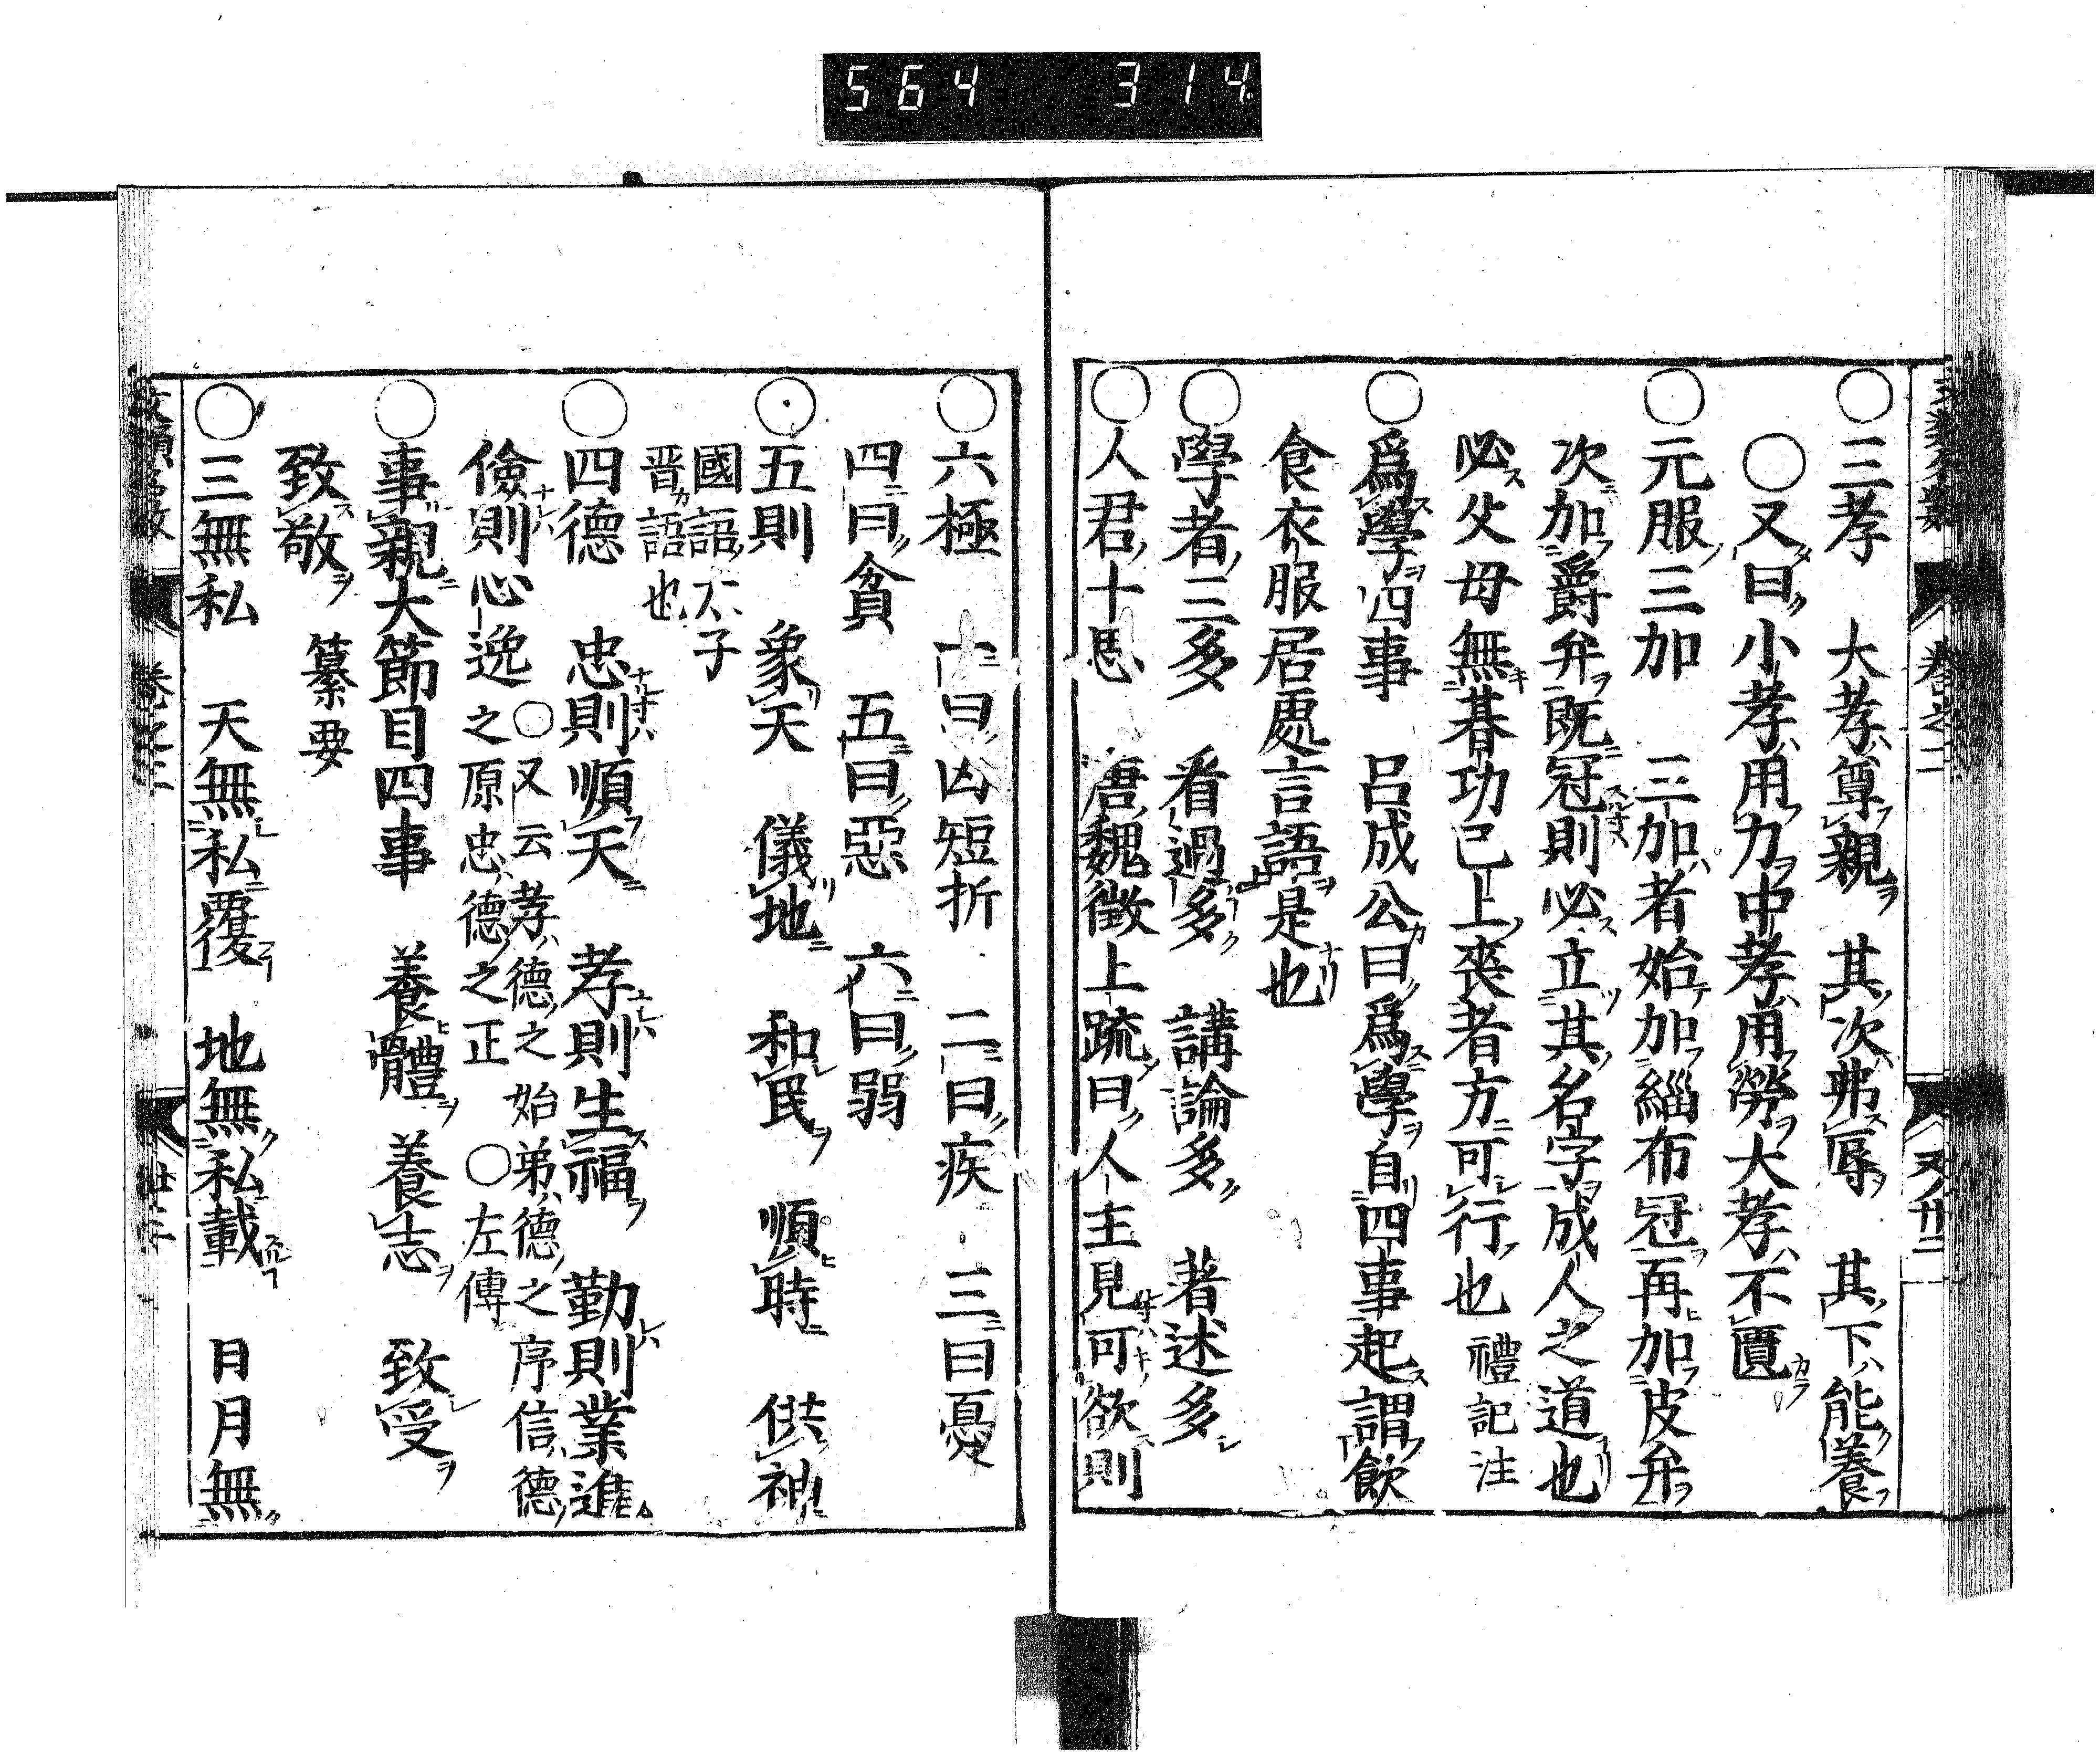 564 314
〇三孝 大孝尊親 其次弗辱 其下能養
〇又曰小孝用力中孝用勞大孝不匱
〇元服三加 三加者始加緇布冠再加皮弁
次加爵弁既冠則必立其名字成人之道也
必父母無朞功已上喪者方可行也 禮記注
〇爲學四事 呂成公曰爲學自四事起謂飲
食衣服居處言語是也
〇學者三多 看過多 講論多 著述多
〇人君十思 唐魏徵上疏曰人主見可欲則
〇六極 一曰凶短折 二曰疾 三曰憂
四曰貧 五曰惡 六曰弱
〇五則 象天 儀地 和民 順時 供神
國語太子
晋語也
〇四德 忠則順天 孝則生福 勤則業進
儉則心逸
〇又云孝德之始弟德之序信德
之原忠德之正 〇左傳
〇事親大節目四事 養體 養志 致受
致敬 纂要
〇三無私 天無私覆 地無私載 日月無